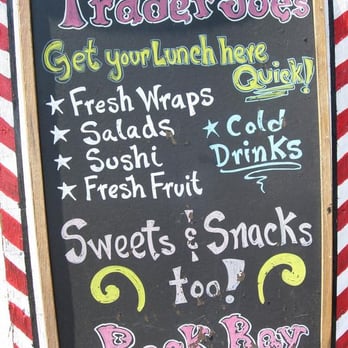 Trader Joe's
Get your Lunch here
Quick!
★ Fresh Wraps
★ Salads
★ Sushi
★ Fresh Fruit
★ Cold
Drinks
Sweets & Snacks
too!
Back Bay